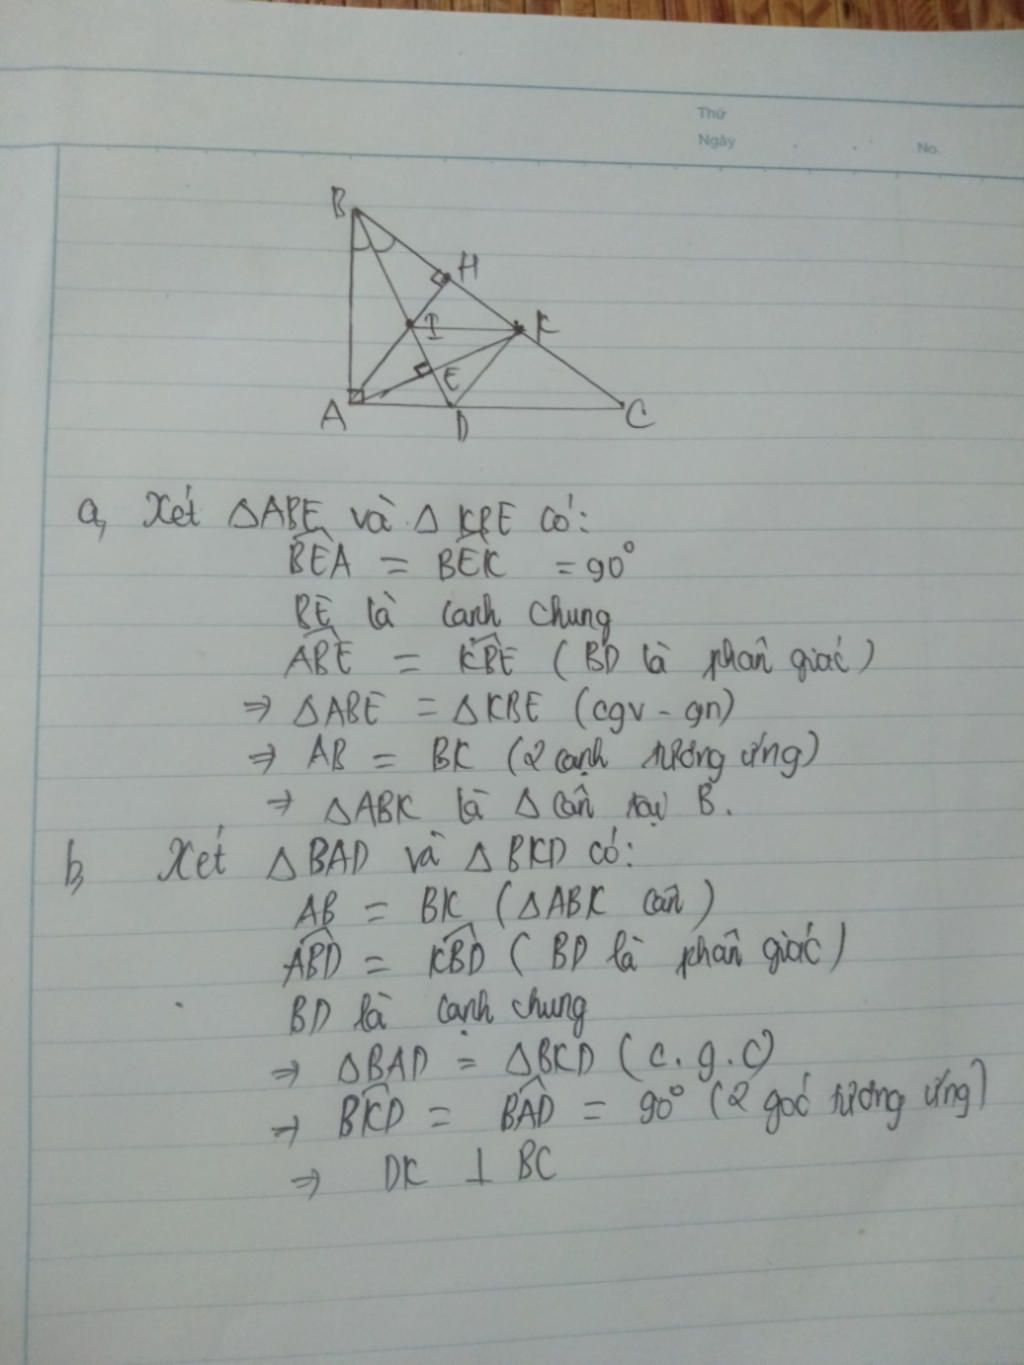 Thứ
Ngày
No.
B
H
I
K
E
A
D
C
a, Xét △ABE và △KBE có:
BEA = BEK = 90°
BE là cạnh chung
ABE = KBE (BD là phân giác)
⇒ △ABE = △KBE (cgv - gn)
⇒ AB = BK (2 cạnh tương ứng)
⇒ △ABK là △ cân tại B.
b, Xét △BAD và △BKD có:
AB = BK (△ABK cân)
ABD = KBD (BD là phân giác)
BD là cạnh chung
⇒ △BAD = △BKD (c.g.c)
⇒ BKD = BAD = 90° (2 góc tương ứng)
⇒ DK ⊥ BC